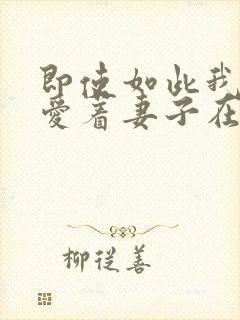 即使如此我
爱着妻子在
柳從善